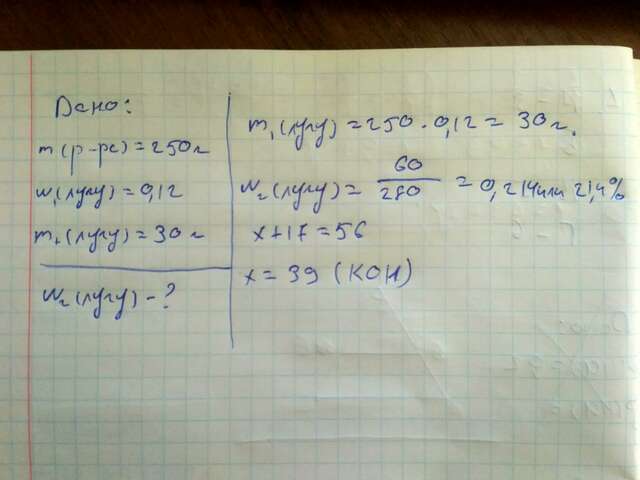 Дано:
m(р-ра)=250г
w₁(лугу)=0,12
m₊(лугу)=30г
w₂(лугу)-?
m₁(лугу)=250·0,12=30г.
w₂(лугу)=60/280=0,214или 21,4%
x+17=56
x=39 (KOH)